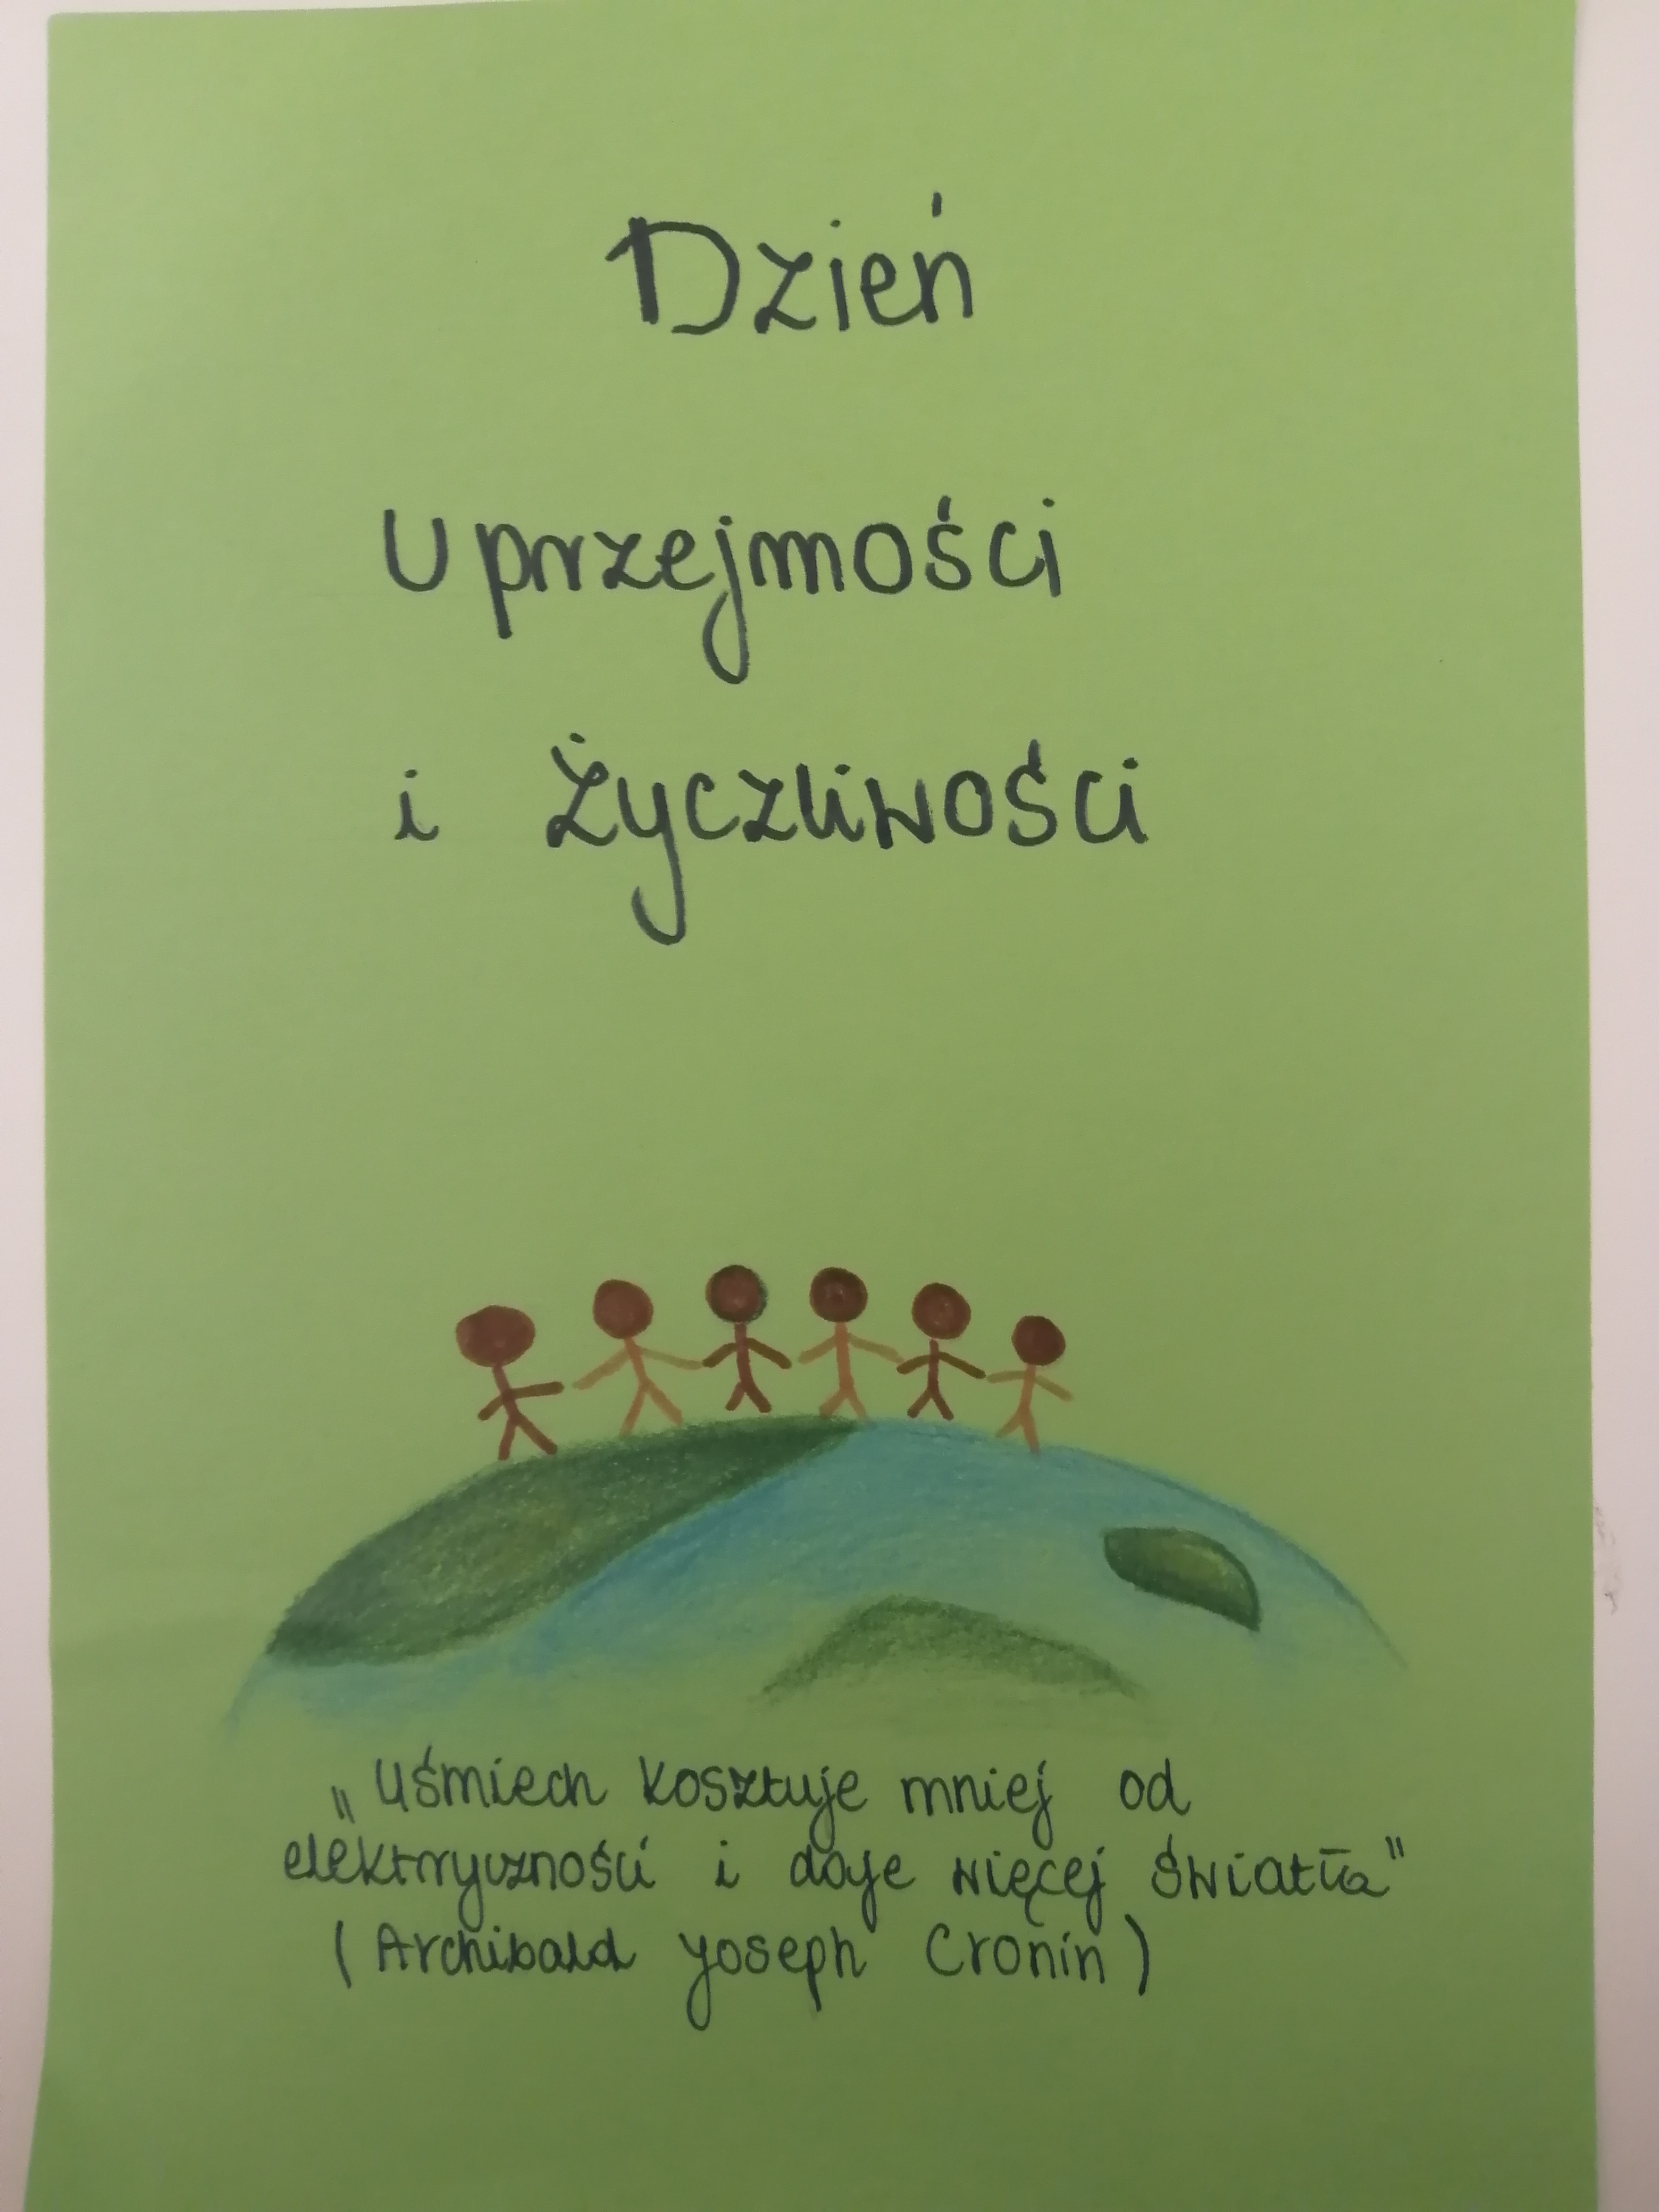 Dzień
Uprzejmości
i Życzliwości
„Uśmiech kosztuje mniej od
elektryczności i daje więcej światła"
(Archibald Yoseph Cronin)